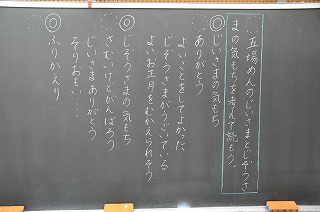 五場めんのじいさまとじぞうさ
まの気もちを考えて読もう。
◎じいさまの気もち
ありがとう
よいことをしてよかった
じぞうさまがうごいている
よいお正月をむかえられそう
◎じぞうさまの気もち
さむいけどがんばろう
じいさまありがとう
そりおもい…
◎ふりかえり